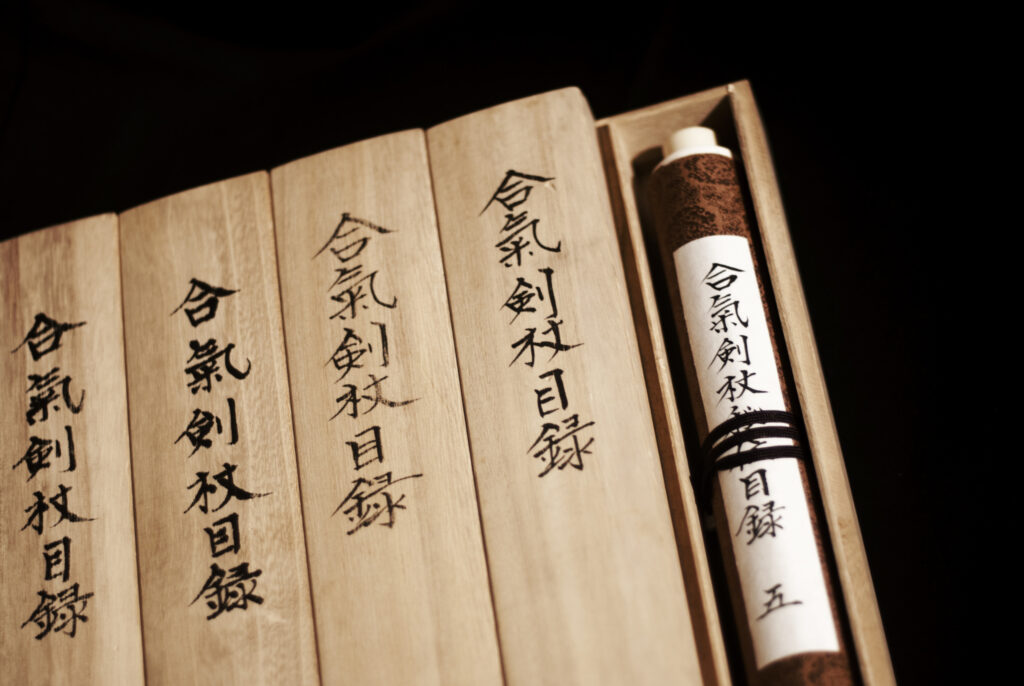 合氣剣杖目録 五
合氣剣杖目録
合氣剣杖目録
合氣剣杖目録
合氣剣杖目録